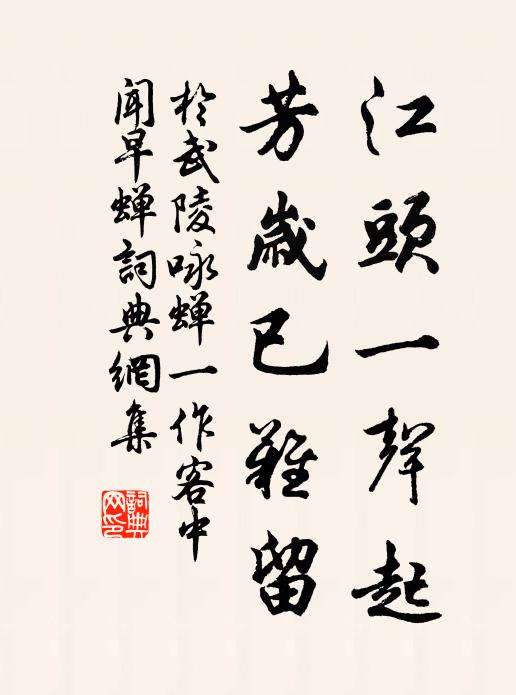 江頭一聲起
芳歲已難留
於武陵咏蟬一作客中
聞早蟬詞典網集
詞典
网印